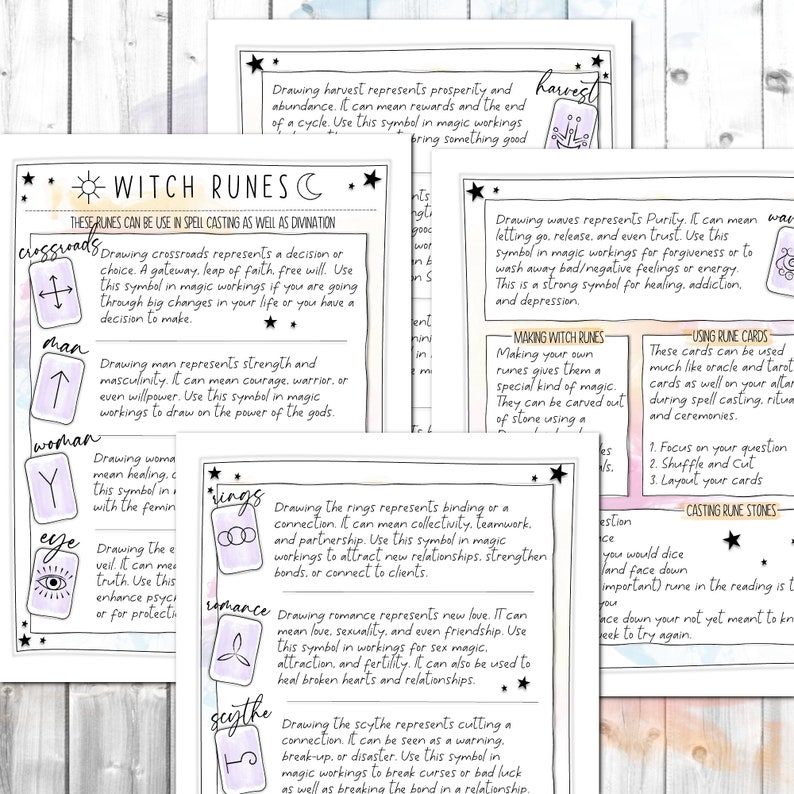 harvest
Drawing harvest represents prosperity and
abundance. It can mean rewards and the end
of a cycle. Use this symbol in magic workings
bring something good
WITCH RUNES
THESE RUNES CAN BE USE IN SPELL CASTING AS WELL AS DIVINATION
crossroads
Drawing crossroads represents a decision or
choice. A gateway, leap of faith, free will. Use
this symbol in magic workings if you are going
through big changes in your life or you have a
decision to make.
man
Drawing man represents strength and
masculinity. It can mean courage, warrior, or
even willpower. Use this symbol in magic
workings to draw on the power of the gods.
woman
Drawing woma
mean healing, c
this symbol in m
with the femin
eye
Drawing the e
veil. It can mean
truth. Use this
enhance psych
or for protectio
Drawing waves represents Purity. It can mean
letting go, release, and even trust. Use this
symbol in magic workings for forgiveness or to
wash away bad/negative feelings or energy.
This is a strong symbol for healing, addiction,
and depression.
wa
MAKING WITCH RUNES
Making your own
runes gives them a
special kind of magic.
They can be carved out
of stone using a
USING RUNE CARDS
These cards can be used
much like oracle and tarot
cards as well on your altar
during spell casting, ritua
and ceremonies.
1. Focus on your question
2. Shuffle and Cut
3. Layout your cards
CASTING RUNE STONES
estion
you would dice
and face down
important) rune in the reading is t
you
ace down your not yet meant to kn
eek to try again.
rings
Drawing the rings represents binding or a
connection. It can mean collectivity, teamwork,
and partnership. Use this symbol in magic
workings to attract new relationships, strengthen
bonds, or connect to clients.
romance
Drawing romance represents new love. IT can
mean love, sexuality, and even friendship. Use
this symbol in workings for sex magic,
attraction, and fertility. It can also be used to
heal broken hearts and relationships.
scythe
Drawing the scythe represents cutting a
connection. It can be seen as a warning,
break-up, or disaster. Use this symbol in
magic workings to break curses or bad luck
as well as breaking the bond in a relationship.